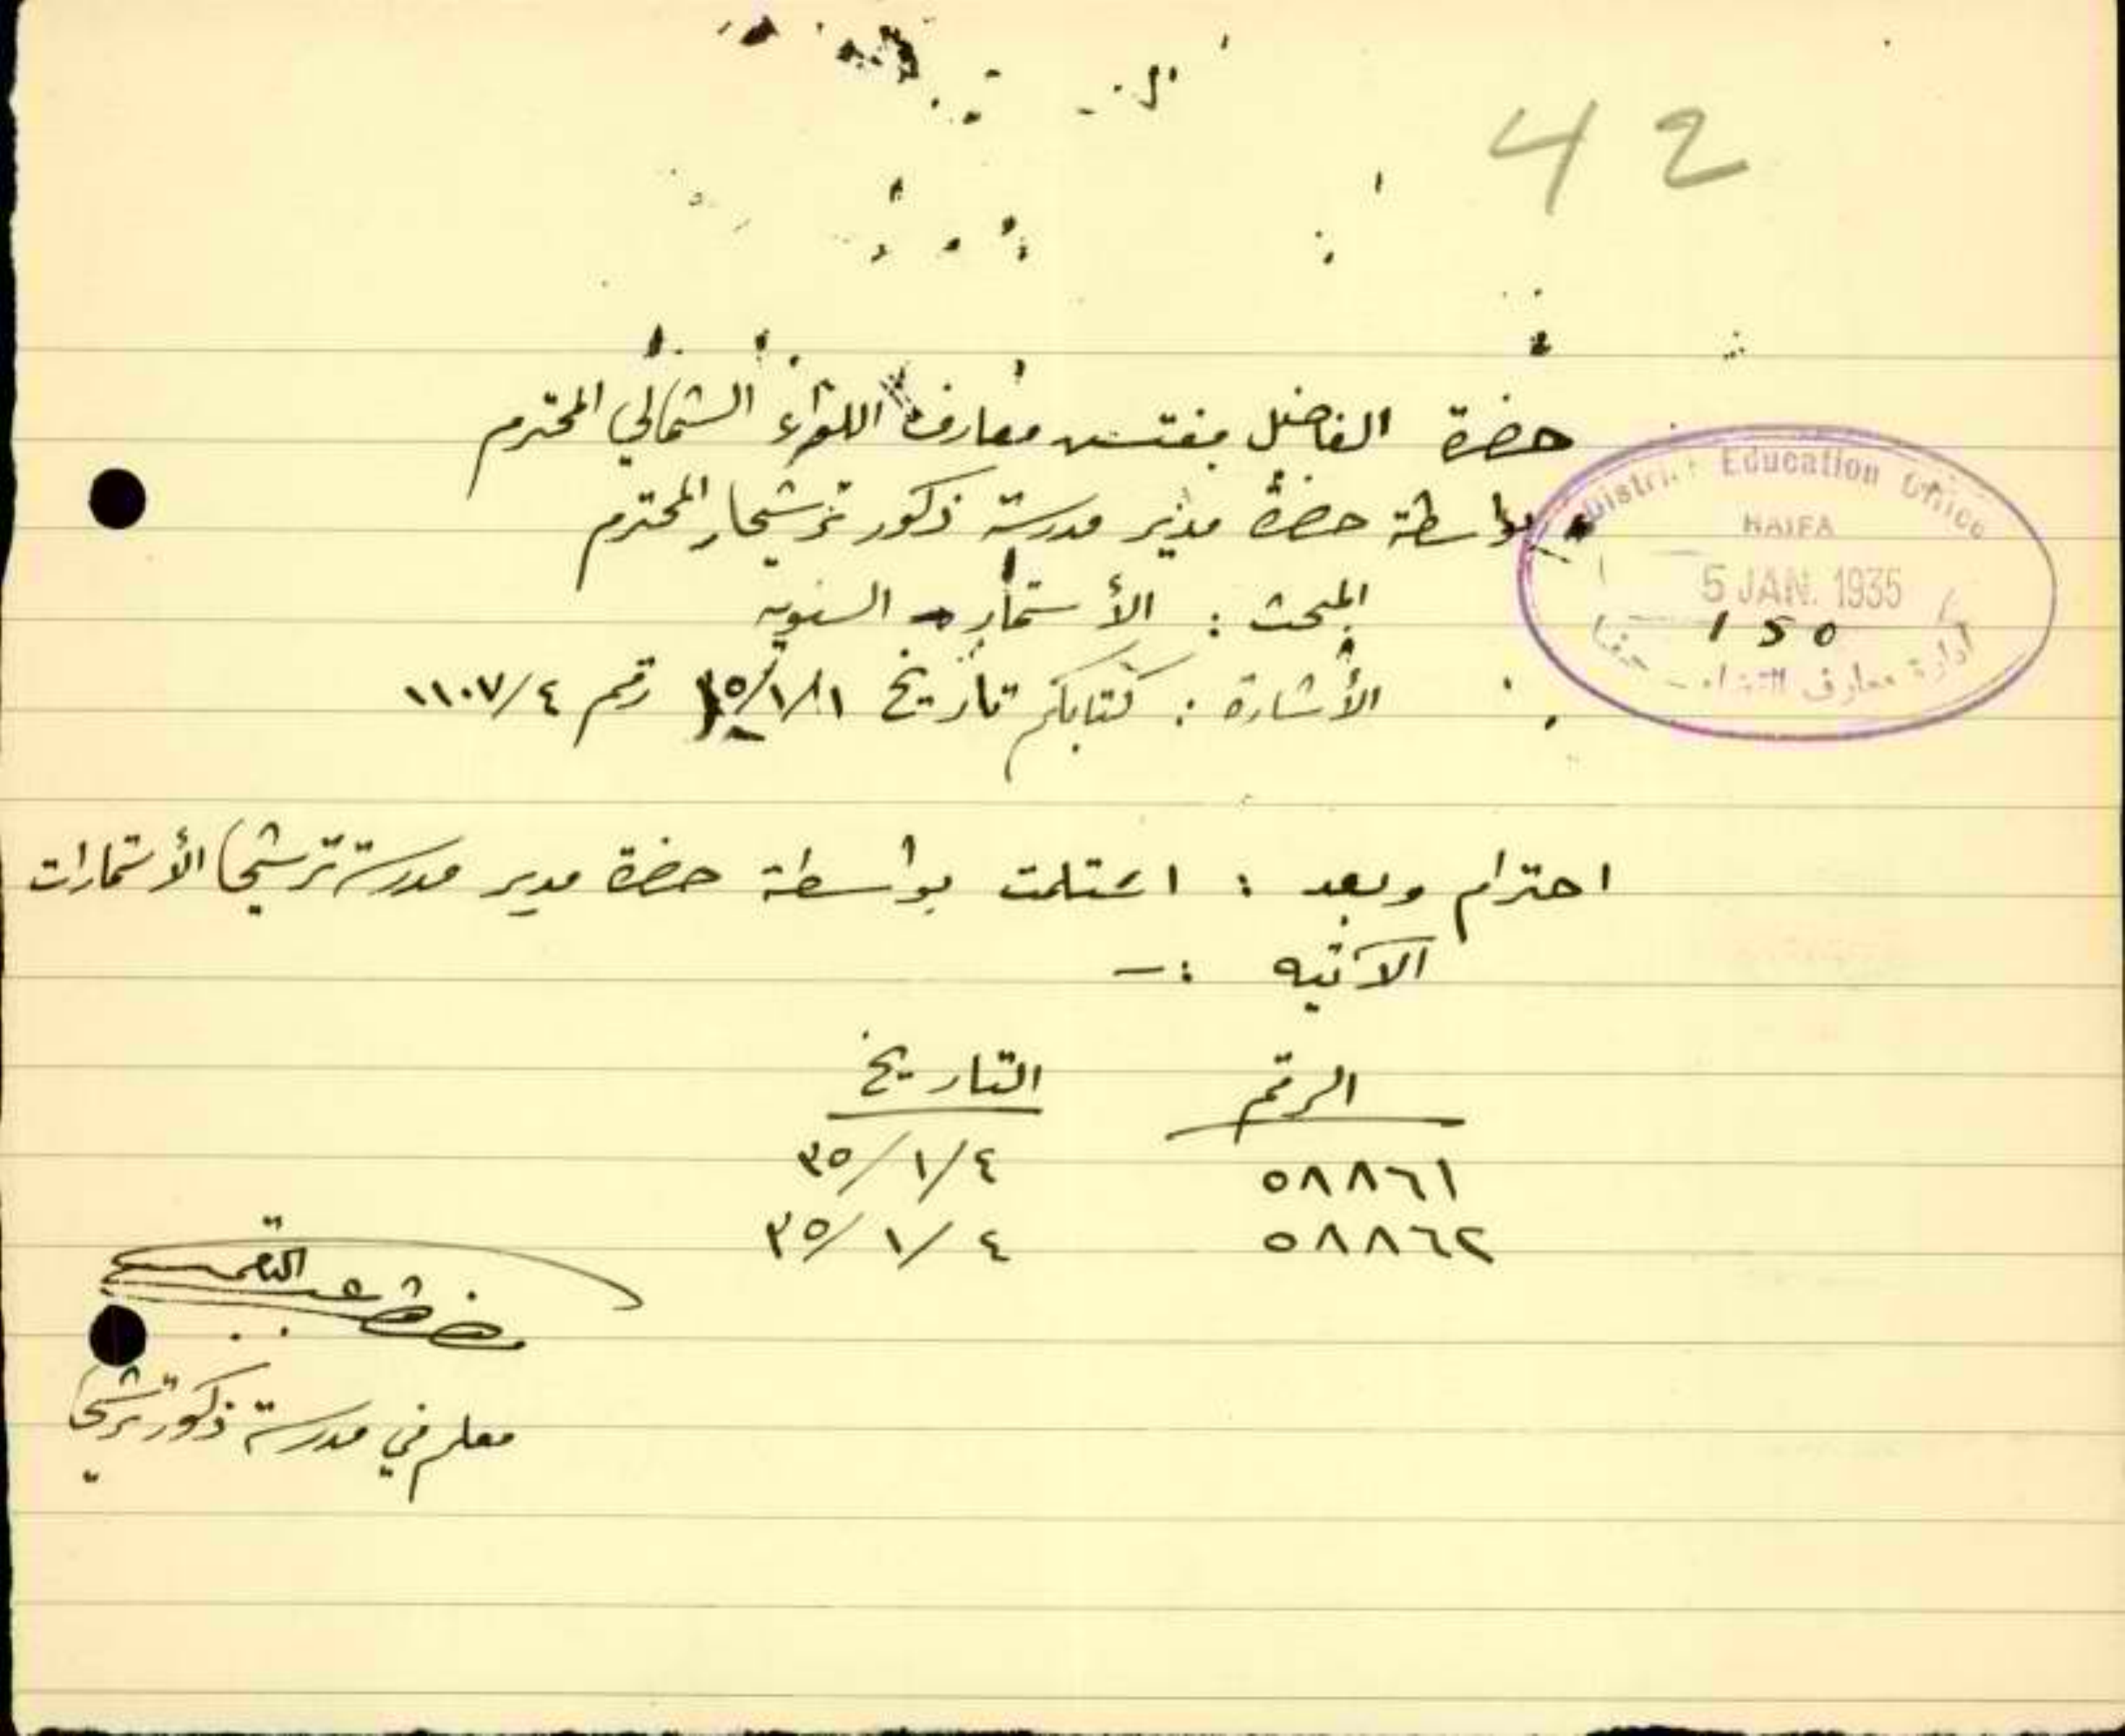 42
حضرة الفاضل مفتش معارف اللواء الشمالي المحترم
بواسطة حضرة مدير مدرسة ذكور ترشيحا المحترم
District Education Office
HAIFA
5 JAN. 1935
150
ادارة معارف
المبحث : الأستمارات السنويه
الأشارة : كتابكم تاريخ ١/١/٣٥ رقم ١١٠٧/٤
احترام وبعد : استلمت بواسطة حضرة مدير مدرسة ترشيحا الأستمارات
الآتيه :-
الرقم التاريخ
٥٨٨٦١ ٤/١/٣٥
٥٨٨٦٢ ٤/١/٣٥
معلم في مدرسة ذكور ترشيحا